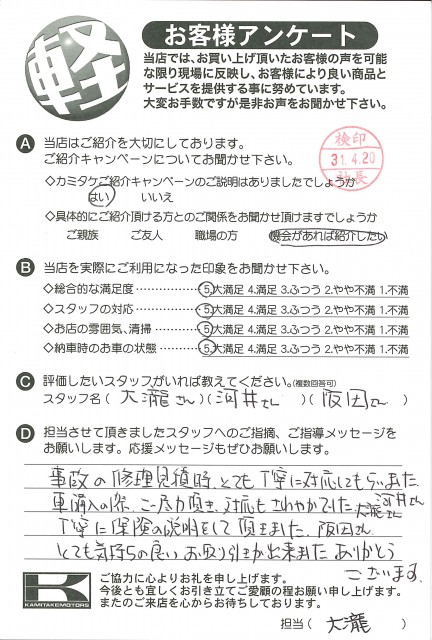 軽
お客様アンケート
当店では、お買い上げ頂いたお客様の声を可能
な限り現場に反映し、お客様により良い商品と
サービスを提供する事に努めています。
大変お手数ですが是非お声をお聞かせ下さい。
A 当店はご紹介を大切にしております。
ご紹介キャンペーンについてお聞かせ下さい。
検印
31.4.20
社長
◇カミタケご紹介キャンペーンのご説明はありましたでしょうか
はい いいえ
◇具体的にご紹介頂ける方とのご関係をお聞かせ頂けますでしょうか
ご親族 ご友人 職場の方 機会があれば紹介したい
B 当店を実際にご利用になった印象をお聞かせ下さい。
◇総合的な満足度 5.大満足 4.満足 3.ふつう 2.やや不満 1.不満
◇スタッフの対応 5.大満足 4.満足 3.ふつう 2.やや不満 1.不満
◇お店の雰囲気、清掃 5.大満足 4.満足 3.ふつう 2.やや不満 1.不満
◇納車時のお車の状態 5.大満足 4.満足 3.ふつう 2.やや不満 1.不満
C 評価したいスタッフがいれば教えてください。(複数回答可)
スタッフ名(大瀧さん)(河井さん)(阪因さん)
D 担当させて頂きましたスタッフへのご指摘、ご指導メッセージを
お願いします。応援メッセージもぜひお願いします。
事故の修理見積時、とても丁寧に対応してもらいました 河井さん
車購入の際、ご尽力頂き、対応もさわやかでした 大瀧さん
丁寧に保険の説明をして頂きました、阪因さん
とても気持ちの良いお取り引きが出来ました ありがとう
ございます。
K
KAMITAKEMOTORS
ご協力に心よりお礼を申し上げます。
今後とも宜しくお引き立てご愛顧の程お願い申し上げます。
またのご来店を心からお待ちしております。
担当(大瀧)